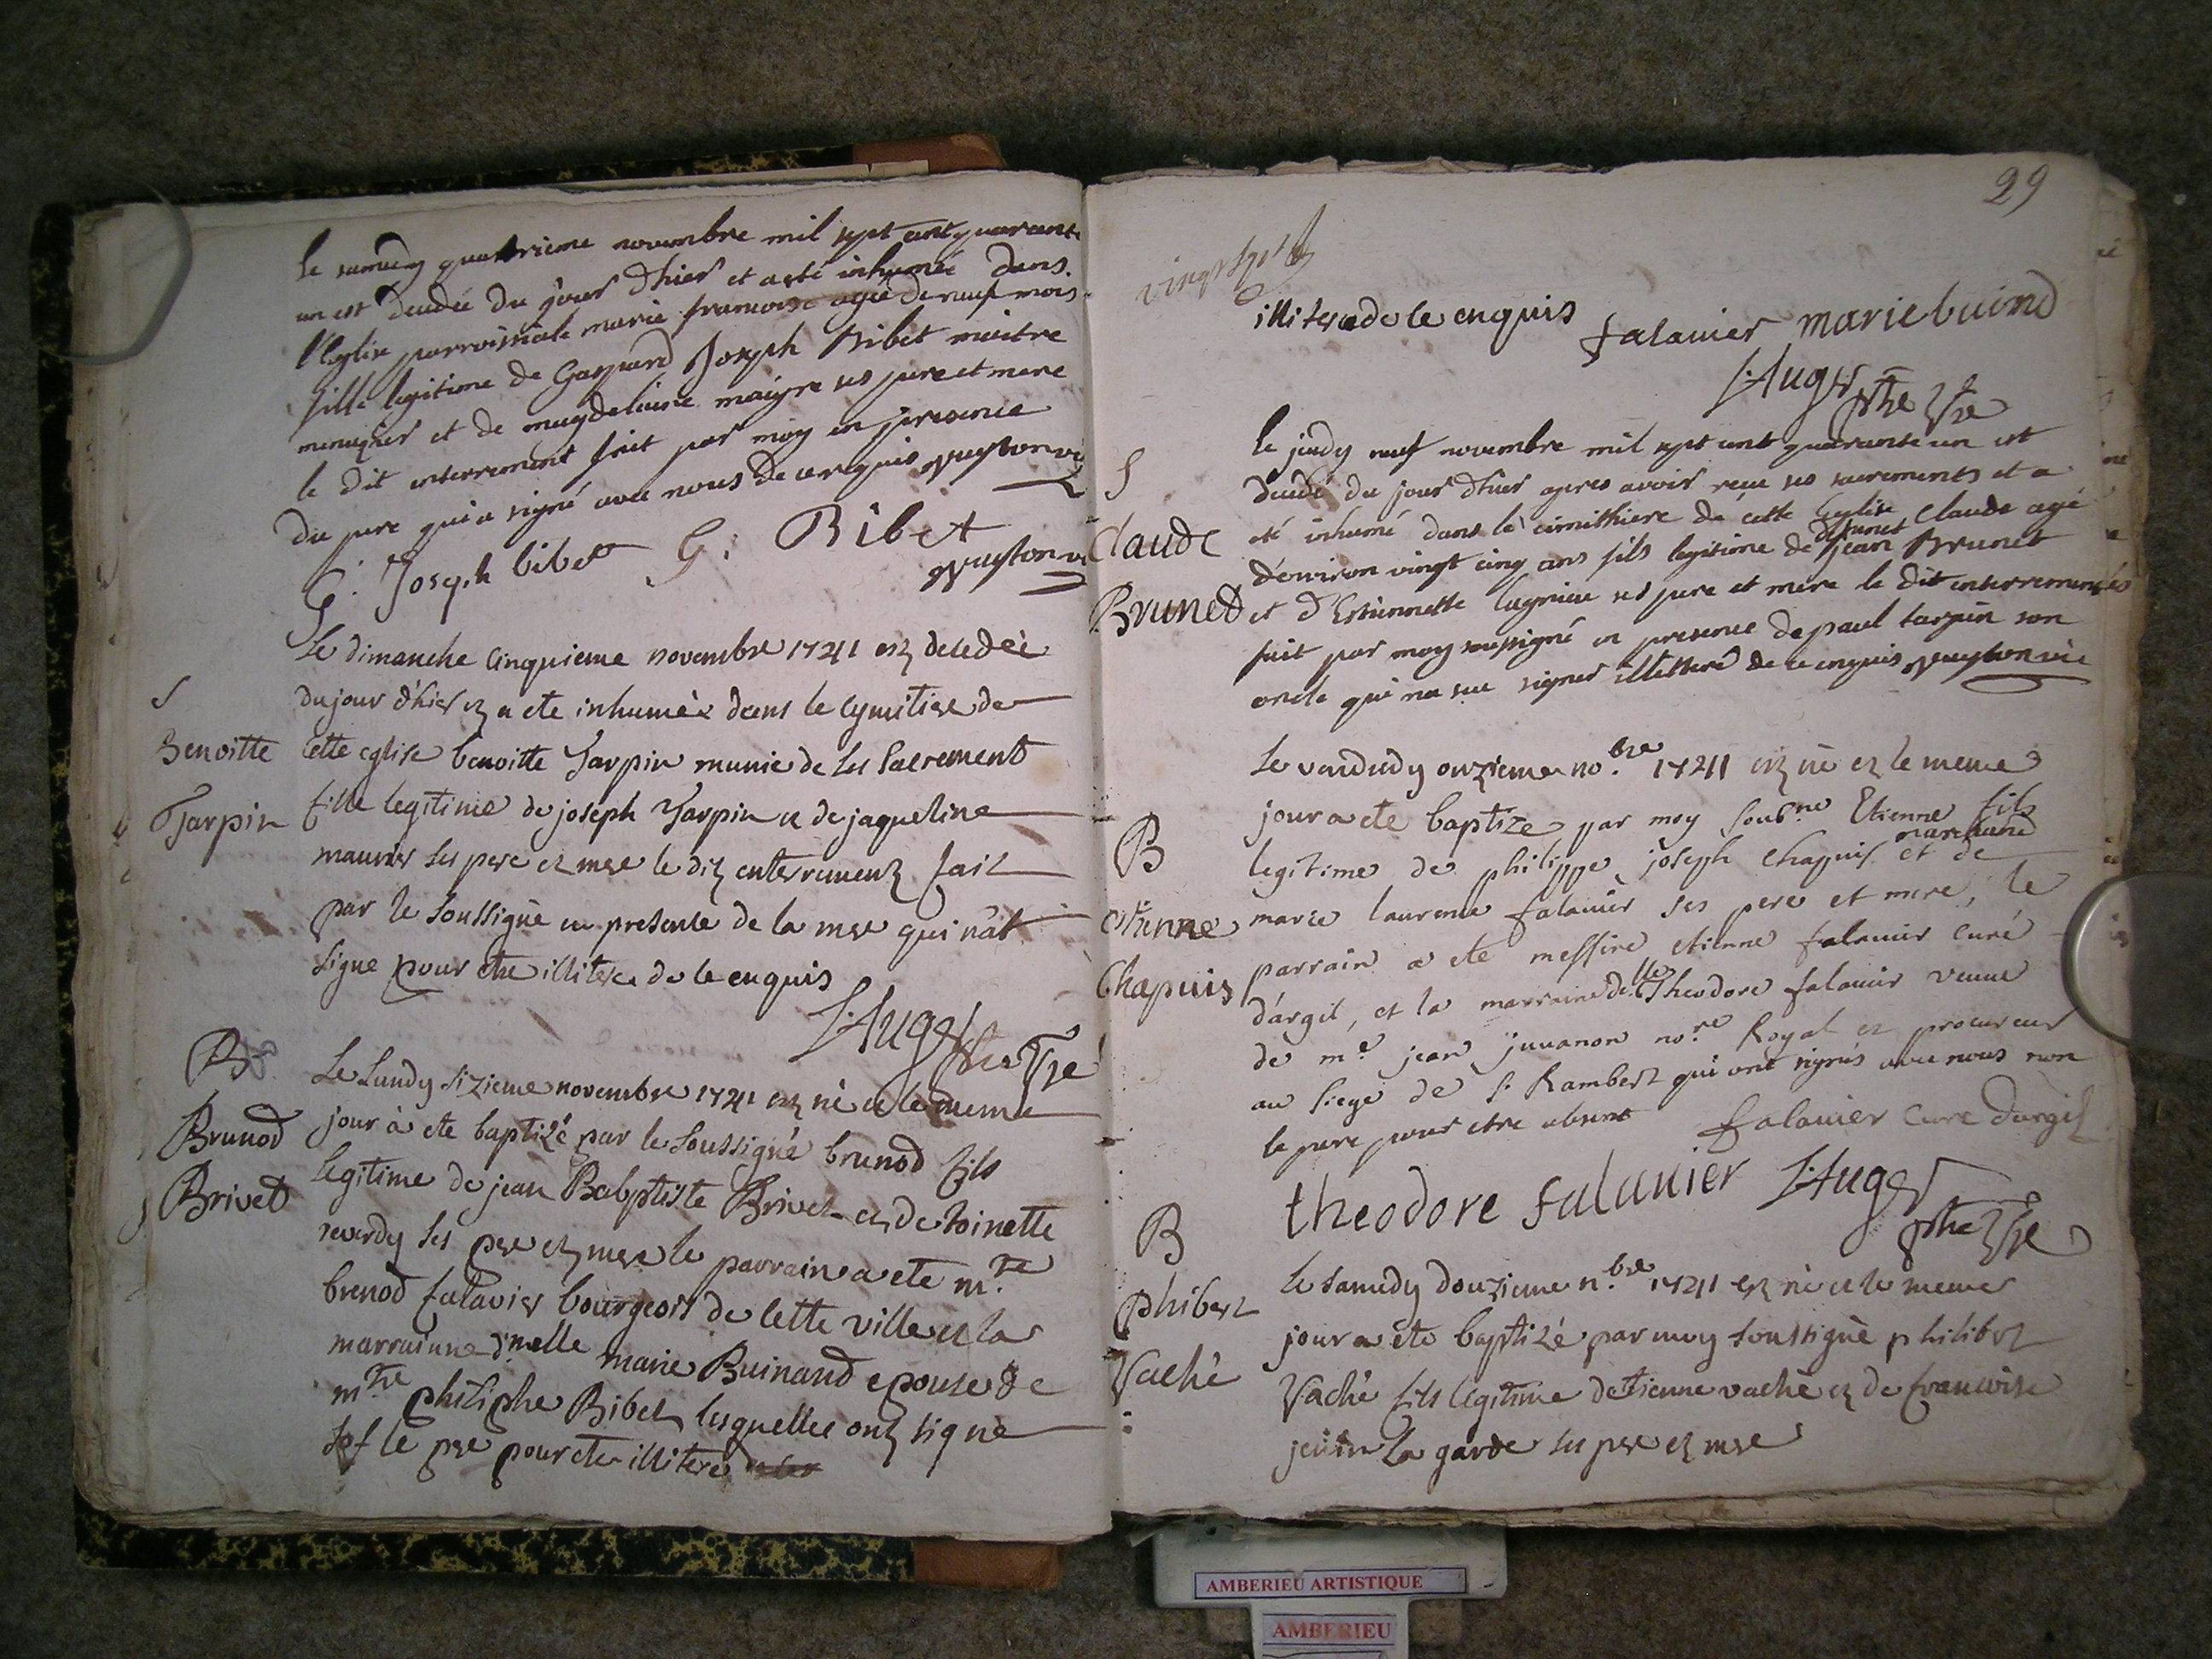 le samedy quatrieme novembre mil sept cent quarante
un est decedée du jour d'hier et a eté inhumée dans
l'Eglise parroissiale marie francoise agée de neuf mois
fille legitime de Gaspard Joseph Ribet maitre
menuzier et de magdelaine maigre ses pere et mere
le dit enterrement fait par moy en presence
du pere qui a signé avec nous de ce enquis
G: Joseph Ribet G: Ribet
S
Benoitte
Tarpin
Le dimanche Cinquieme novembre 1741 est decedeé
du jour d'hier et a ete inhumèe dans le Cymitiere de
Cette eglise benoitte Tarpin munie de ses Sacrement
fille legitime de joseph Tarpin et de jaqueline
maunier ses pere et mere le dit enterrement fait
par le soussigné en presence de la mere qui n'at
signe pour etre illitere de le enquis
J:Auger ptre Vre
B
Brunod
Brived
Le Lundy sizieme novembre 1741 est né et le meme
jour à ete baptizé par le soussigné brunod fils
legitime de jean Babptiste Brivet et de toinette
reverdy ses pere et mere le parrain a ete m.re
brenod falavier bourgeois de Cette ville et la
marrainne d.melle marie Buinand epouse de
m.tre philiphe Ribet lesquelles ont signe
sof le pere pour etre illitere
29
vingt
illitere de le enquis
falavier marie buind
J:Auger ptre Vre
S
Claude
Bruned
le jeudy neuf novembre mil sept cent quarante un est
decedé du jour d'hier apres avoir receu ses sacrements et a
eté inhumé dans le cimithiere de cette Eglise Claude agé
d'environ vingt cinq ans fils legitime de defunct jean Brunet
et d'Estiennette lagnieu ses pere et mere le dit enterrement
fait par moy soussigné en presence de paul tarpin son
oncle qui n'a sceu signer illitteré de ce enquis
B
etienne
Chapuis
Le vendredy onzieme no.bre 1741 est né et le meme
jour a ete baptize par moy Etienne fils
legitime de philippe joseph Chapuis marchand et de
marie laurence falavier ses pere et mere, le
parrain a ete messire etienne falavier curé
d'argil, et la marraine de.lle Theodore falavier veuve
de m.e jean juvanon no.re Royal et procureur
au siege de S. Rambert qui ont signés avec nous non
le pere pour etre absent
falavier curé dargil
theodore falavier J:Auger
ptre Vre
B
phibert
Vaché
Le samedy douzieme n.bre 1741 est né et le meme
jour a ete baptizé par moy soussigné philibert
Vaché fils legitime detienne vaché et de francoise
la garde ses pere et mere
AMBERIEU ARTISTIQUE
AMBERIEU